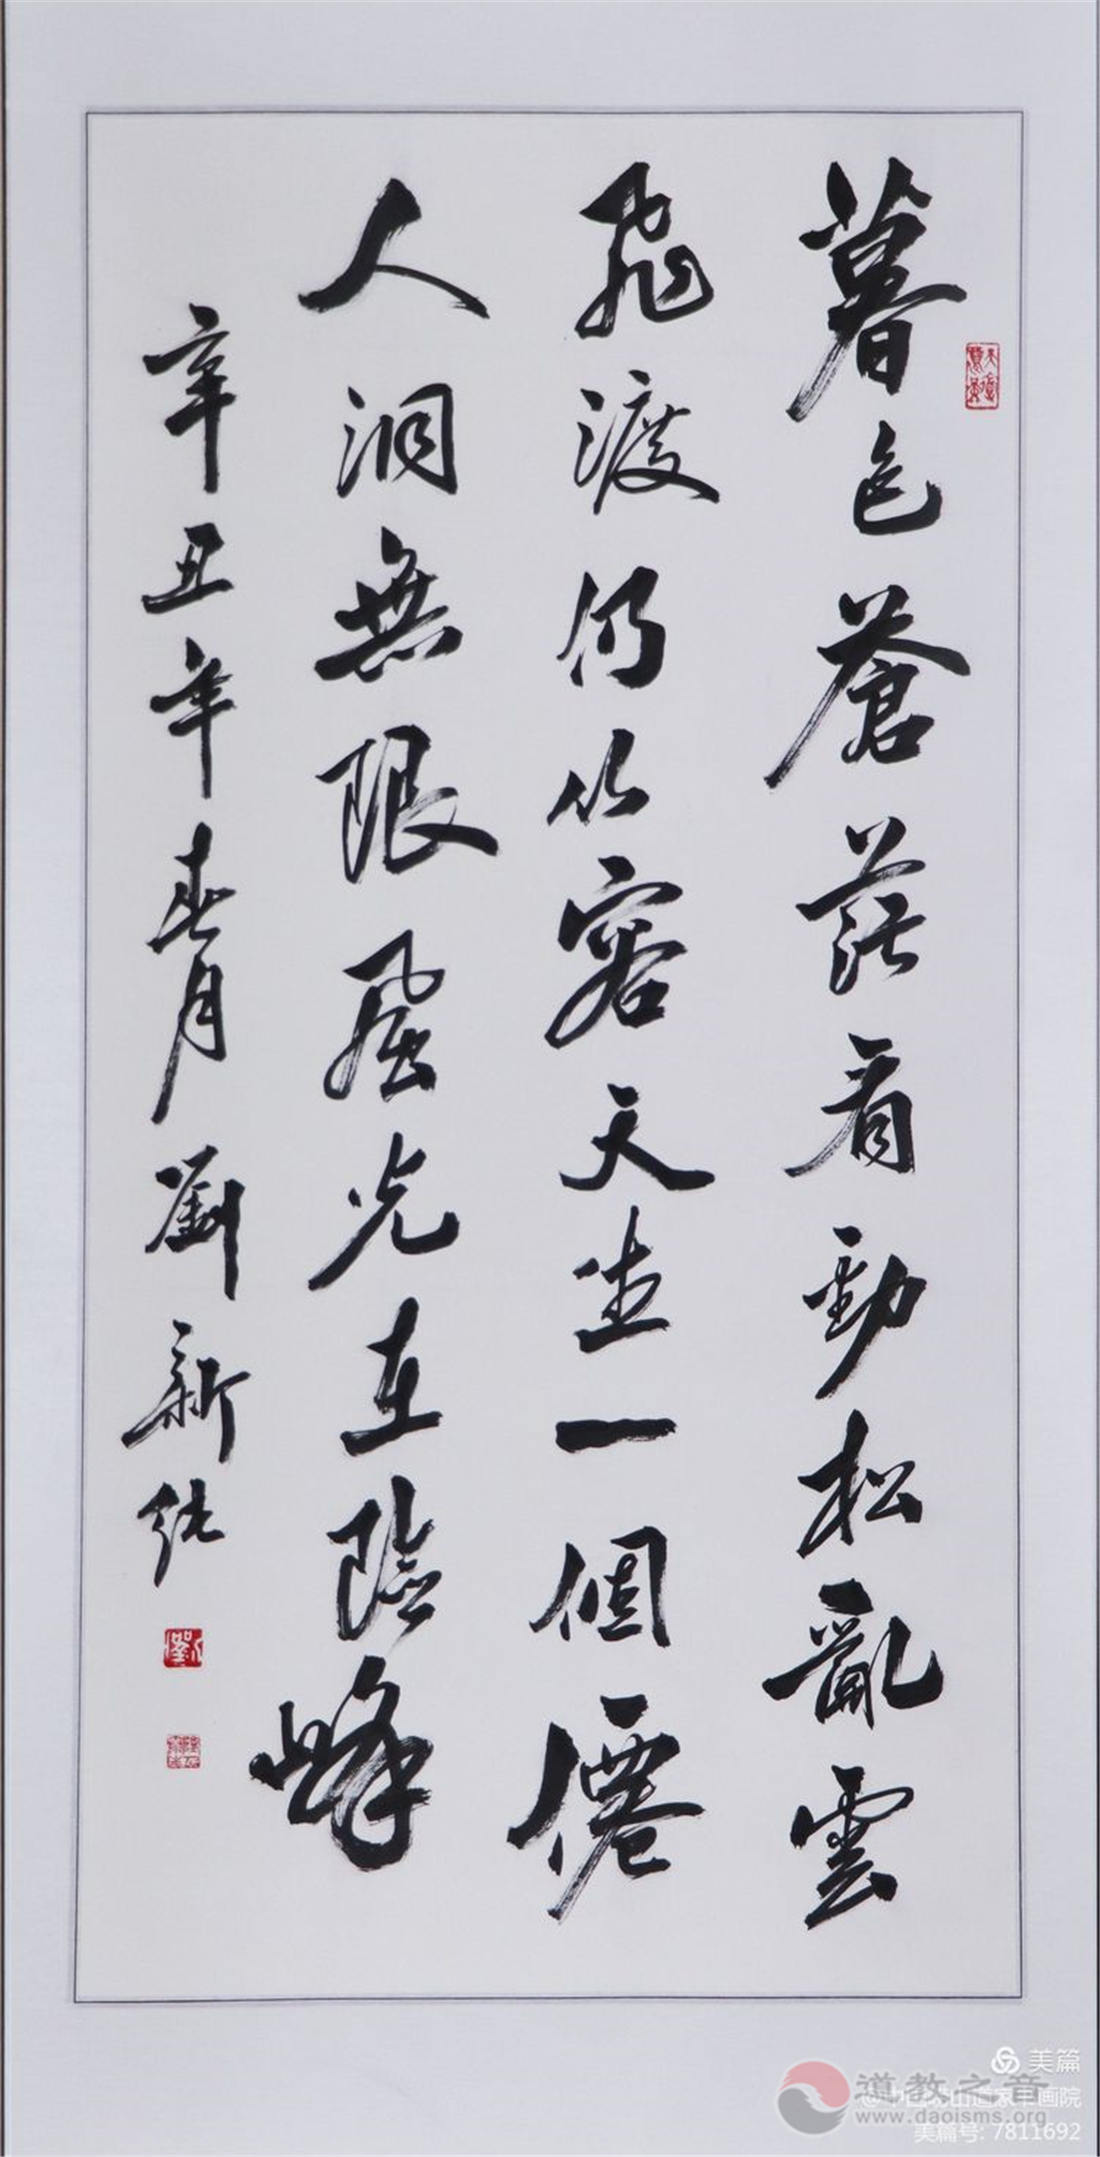 暮色蒼茫看勁松亂雲
飛渡仍從容天生一個僊
人洞無限風光在險峰
辛丑年春月劉新純
美篇
道教之音
www.daoisms.org
美篇号: 7811692